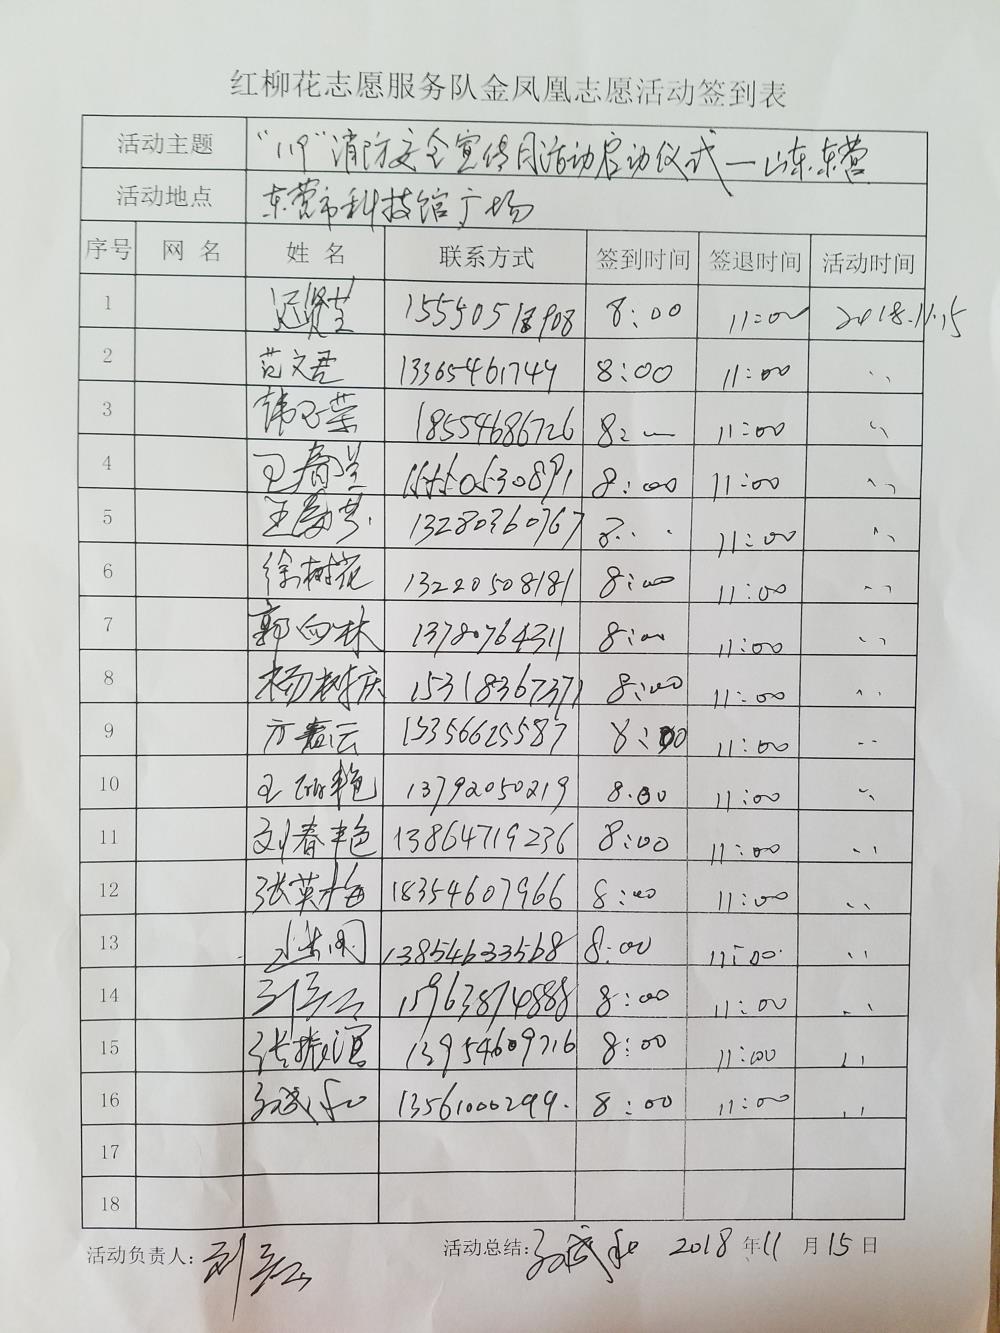 红柳花志愿服务队金凤凰志愿活动签到表
活动主题 “119”消防安全宣传月活动启动仪式—山东东营
活动地点 东营市科技馆广场
序号 网 名 姓 名 联系方式 签到时间 签退时间 活动时间
1 8:00 11:00 2018.11.15
2 范文君 13365461749 8:00 11:00 〃
3 18554686726 11:00 〃
4 王春兰 15550630891 8:00 11:00 〃
5 13280360767 11:00 〃
6 徐树花 13220508181 8:00 11:00 〃
7 郭向林 13780764311 8:00 11:00 〃
8 杨树庆 15318367371 8:00 11:00 〃
9 方嘉云 13356625587 8:00 11:00 〃
10 13792050219 8:00 11:00 〃
11 刘春艳 13864719236 8:00 11:00 〃
12 张英梅 18354607966 8:00 11:00 〃
13 13854633568 8:00 11:00 〃
14 15963874888 8:00 11:00 〃
15 13954609716 8:00 11:00 〃
16 13561000299. 8:00 11:00 〃
17
18
活动负责人: 活动总结: 2018 年 11 月 15 日